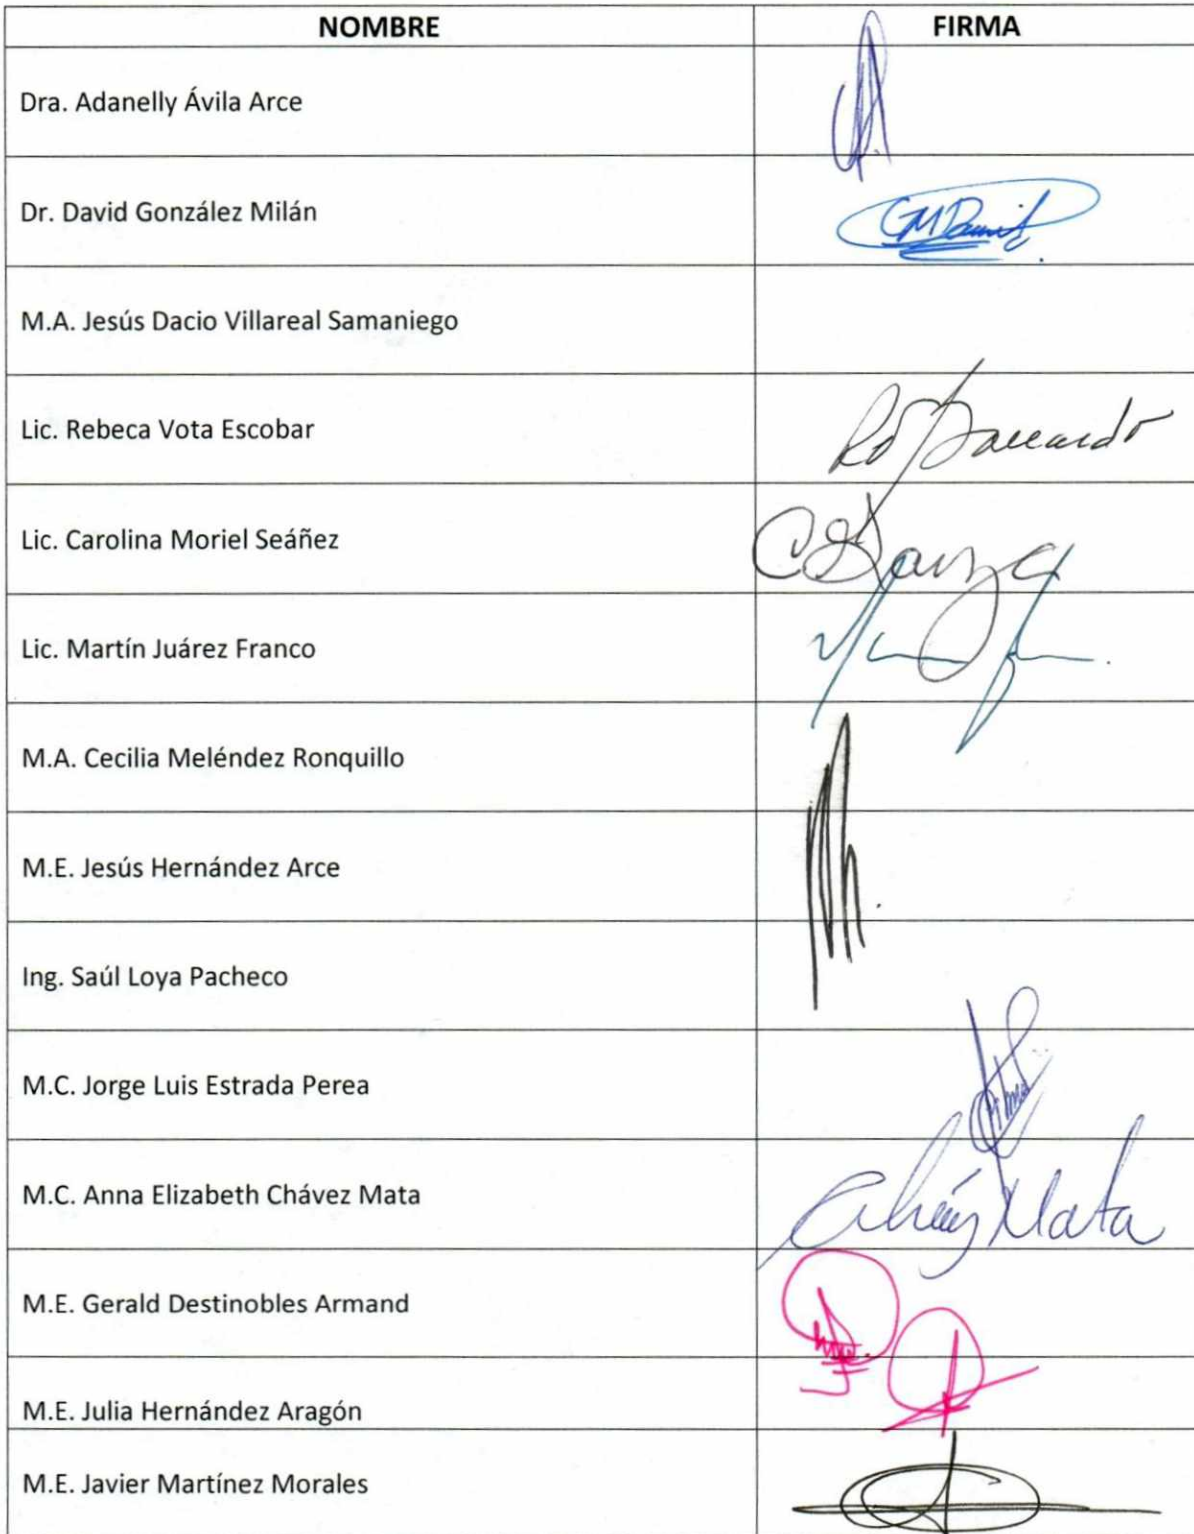 NOMBRE FIRMA
Dra. Adanelly Ávila Arce
Dr. David González Milán GMDavid
M.A. Jesús Dacio Villareal Samaniego
Lic. Rebeca Vota Escobar
Lic. Carolina Moriel Seáñez
Lic. Martín Juárez Franco
M.A. Cecilia Meléndez Ronquillo
M.E. Jesús Hernández Arce
Ing. Saúl Loya Pacheco
M.C. Jorge Luis Estrada Perea
M.C. Anna Elizabeth Chávez Mata Chávez Mata
M.E. Gerald Destinobles Armand
M.E. Julia Hernández Aragón
M.E. Javier Martínez Morales